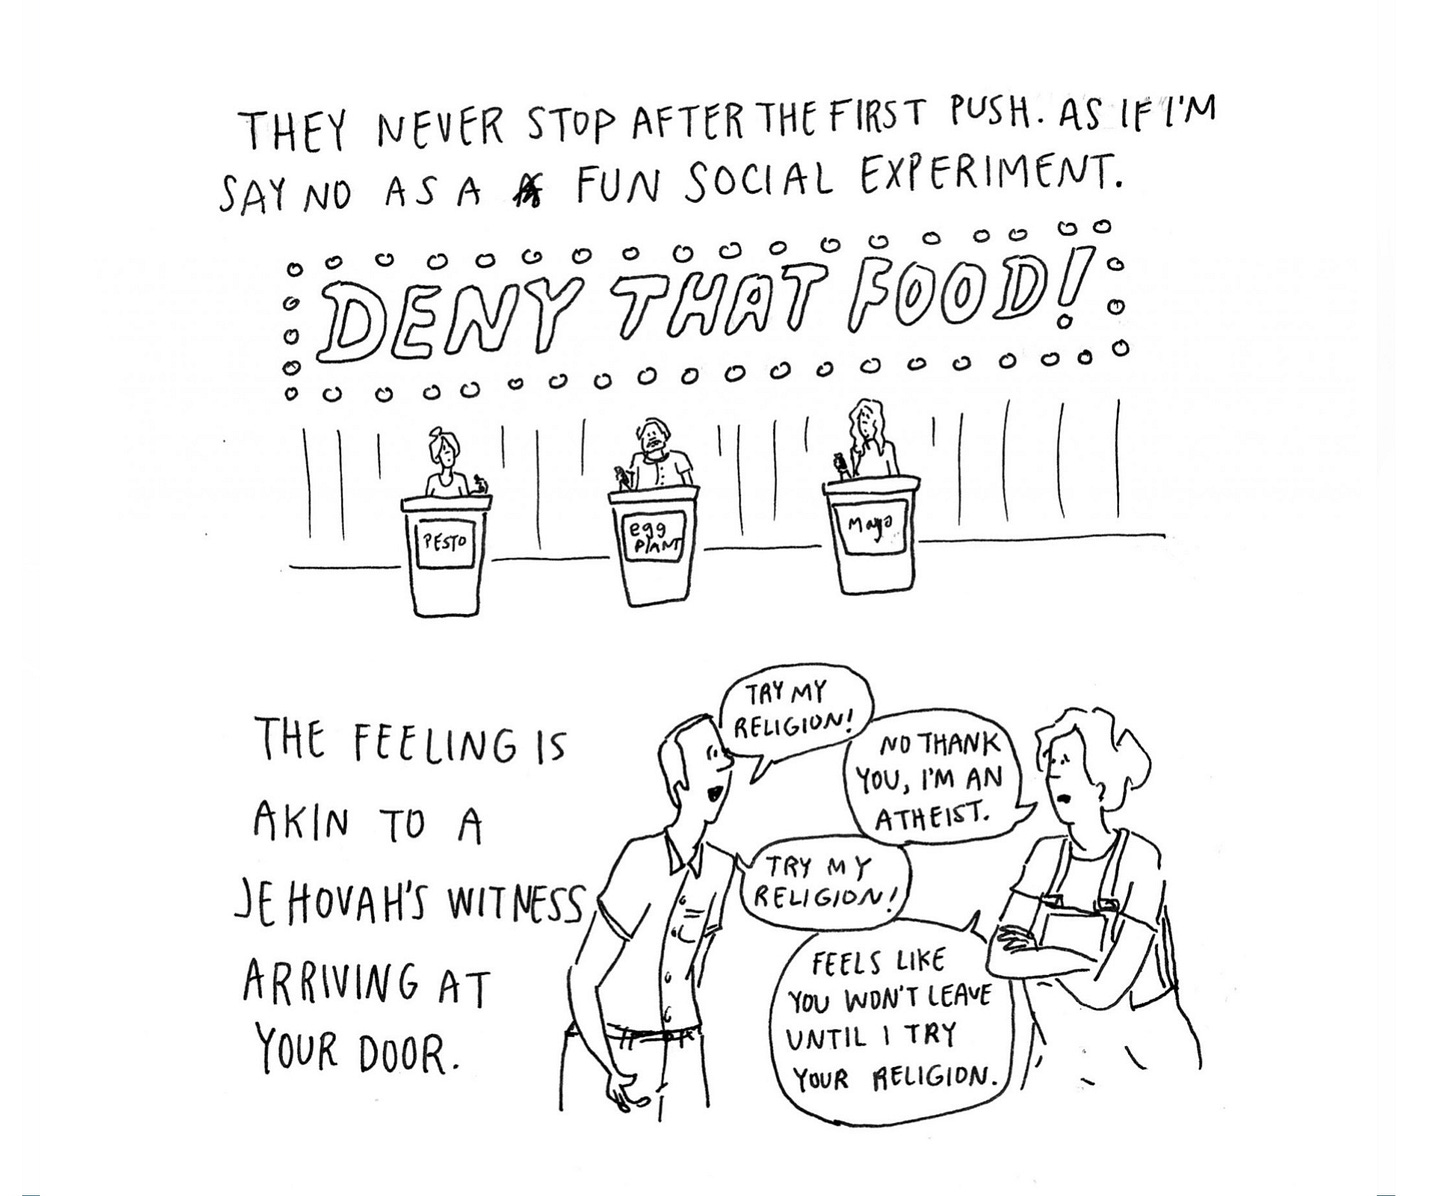 THEY NEVER STOP AFTER THE FIRST PUSH. AS IF I'M
SAY NO AS A FUN SOCIAL EXPERIMENT.
DENY THAT FOOD!
PESTO
egg
PlANT
Mayo
THE FEELING IS
AKIN TO A
JEHOVAH'S WITNESS
ARRIVING AT
YOUR DOOR.
TRY MY
RELIGION!
NO THANK
YOU, I'M AN
ATHEIST.
TRY MY
RELIGION!
FEELS LIKE
YOU WON'T LEAVE
UNTIL I TRY
YOUR RELIGION.